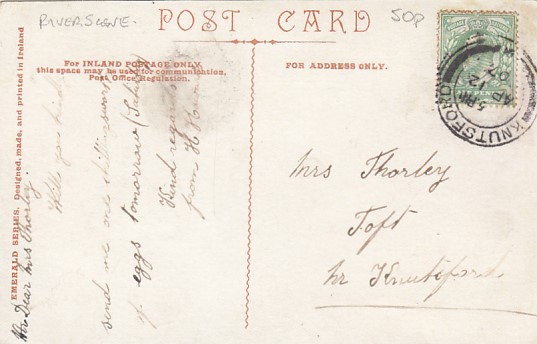 RIVER SCENE -
50p
POST CARD
For INLAND POSTAGE ONLY,
this space may be used for communication.
Post Office Regulation.
FOR ADDRESS ONLY.
KNUTSFORD
EMERALD SERIES. Designed, made, and printed in Ireland
Dear Mrs Thorley
Will you kindly
send me one shillingsworth
of eggs tomorrow (Saturday)
Kind regards
from H
Mrs Thorley
Toft
Nr Knutsford